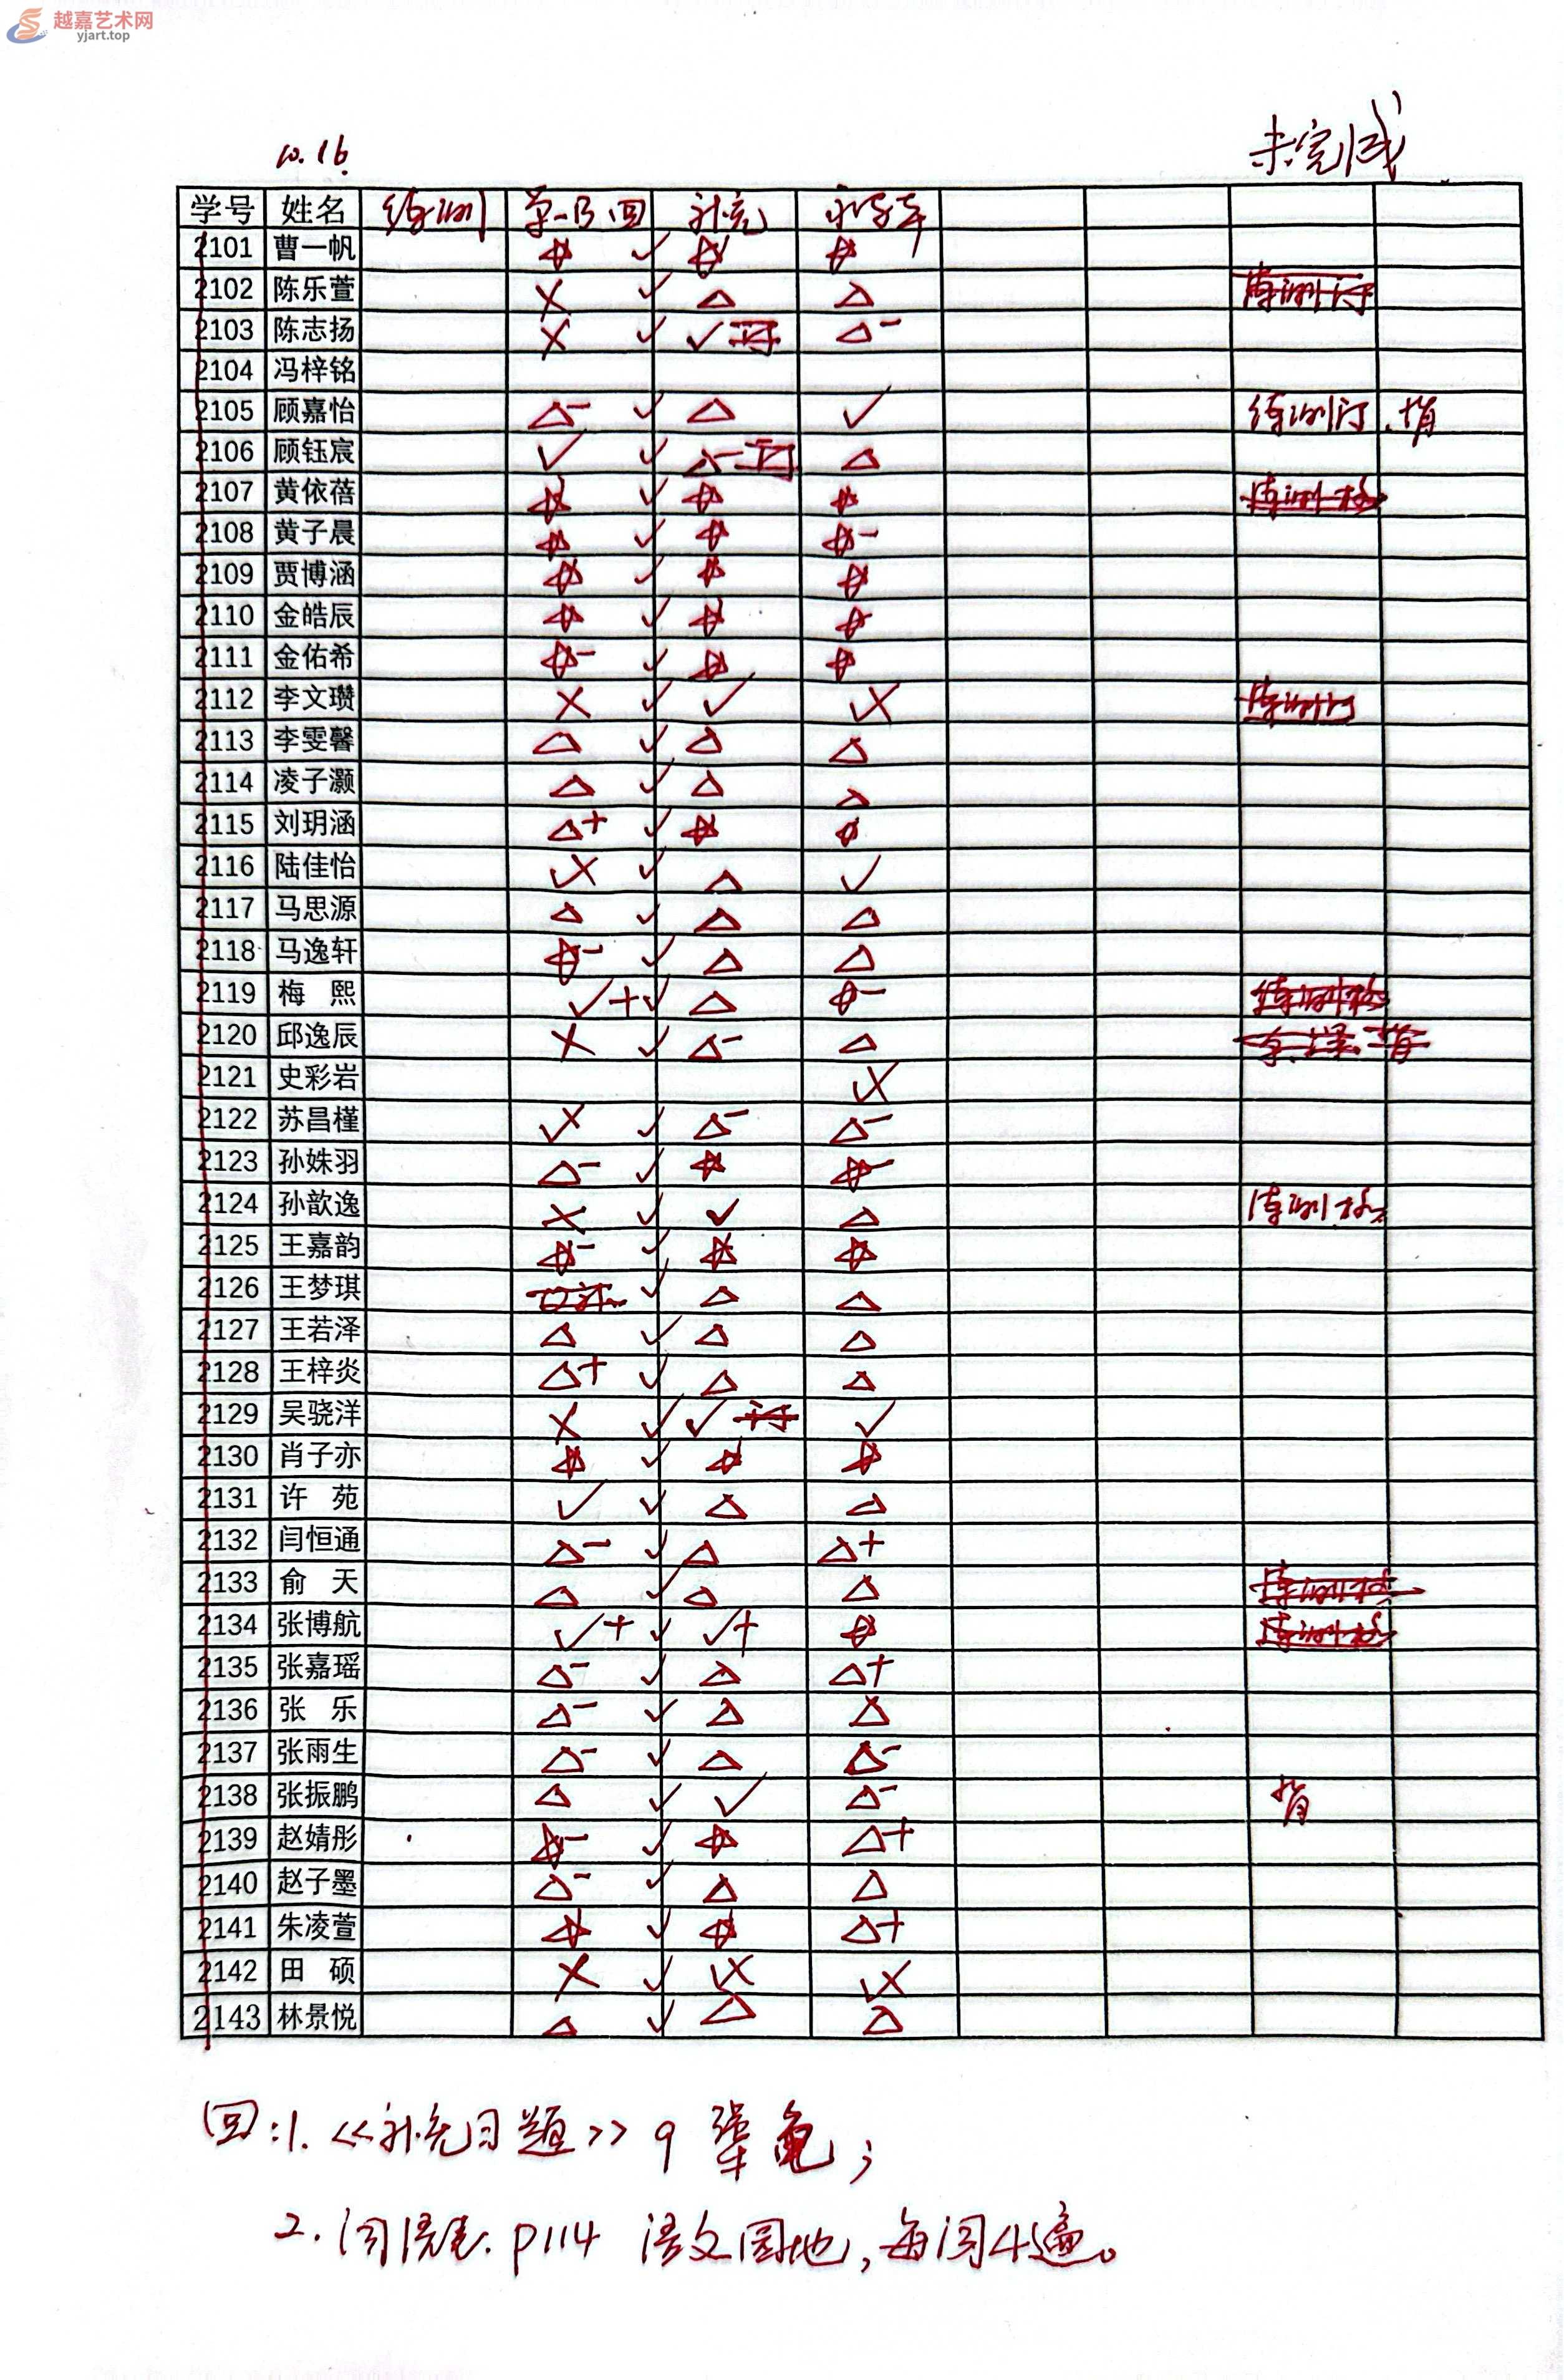 越嘉艺术网
yjart.top
10.16
未完成
学号 姓名 练测 单一B 回 补充
2101 曹一帆 ✓
2102 陈乐萱 × ✓ △ △
2103 陈志扬 × ✓ ✓ △-
2104 冯梓铭
2105 顾嘉怡 △- ✓ △ ✓ 练测订、背
2106 顾钰宸 ✓ ✓ △- △
2107 黄依蓓 ✓
2108 黄子晨 ✓
2109 贾博涵 ✓
2110 金皓辰 ✓
2111 金佑希 ✓
2112 李文瓒 × ✓ ✓
2113 李雯馨 △ ✓ △ △
2114 凌子灏 △ ✓ △ △
2115 刘玥涵 △+ ✓
2116 陆佳怡 ✓ △ ✓
2117 马思源 △ ✓ △ △
2118 马逸轩 ✓ △ △
2119 梅熙 ✓+ ✓ △
2120 邱逸辰 × ✓ △- △
2121 史彩岩
2122 苏昌槿 ✓ △- △-
2123 孙姝羽 △- ✓
2124 孙歆逸 × ✓ ✓ △
2125 王嘉韵 ✓
2126 王梦琪 ✓ △ △
2127 王若泽 △ ✓ △ △
2128 王梓炎 △+ ✓ △ △
2129 吴骁洋 × ✓ ✓ ✓
2130 肖子亦 ✓
2131 许苑 ✓ ✓ △ △
2132 闫恒通 △- ✓ △ △+
2133 俞天 △ ✓ △ △
2134 张博航 ✓+ ✓ ✓+
2135 张嘉瑶 △- ✓ △ △+
2136 张乐 △- ✓ △ △
2137 张雨生 △- ✓ △ △-
2138 张振鹏 △ ✓ ✓ △- 背
2139 赵婧彤 ✓ △+
2140 赵子墨 △- ✓ △ △
2141 朱凌萱 ✓ △+
2142 田硕 × ✓
2143 林景悦 △ ✓ △ △
回:1.《补充习题》9 犟龟;
2.词语表.P114 语文园地,每词4遍。